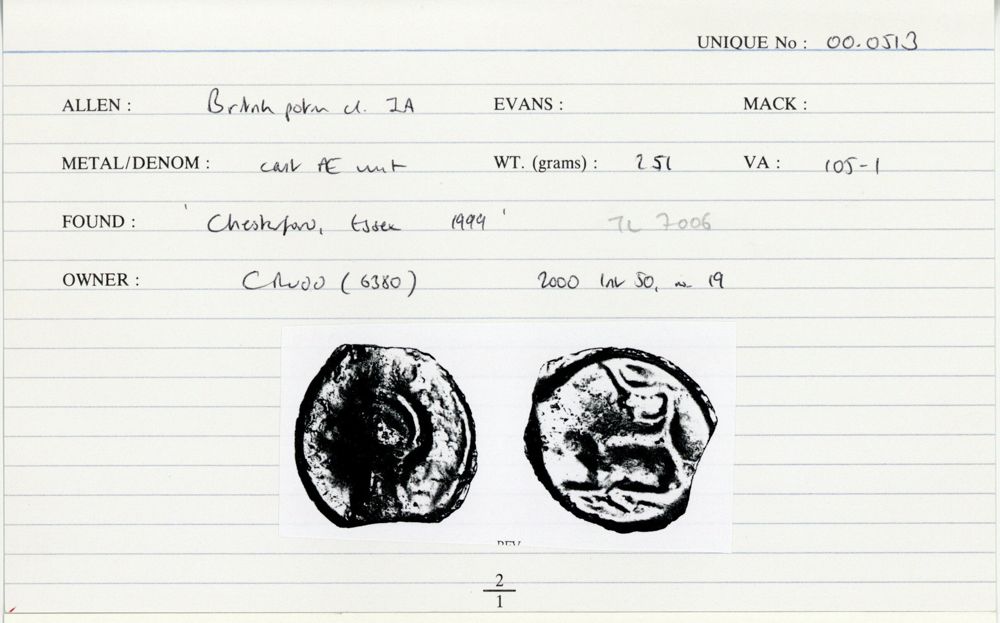 UNIQUE No : 00.0513
ALLEN : British potin cl. IA EVANS : MACK :
METAL/DENOM : cast AE unit WT. (grams) : 2.51 VA : 105-1
FOUND : 'Chesterford, Essex 1999' TL 7006
OWNER : (6380) 2000 50, no 19
REV
2
1